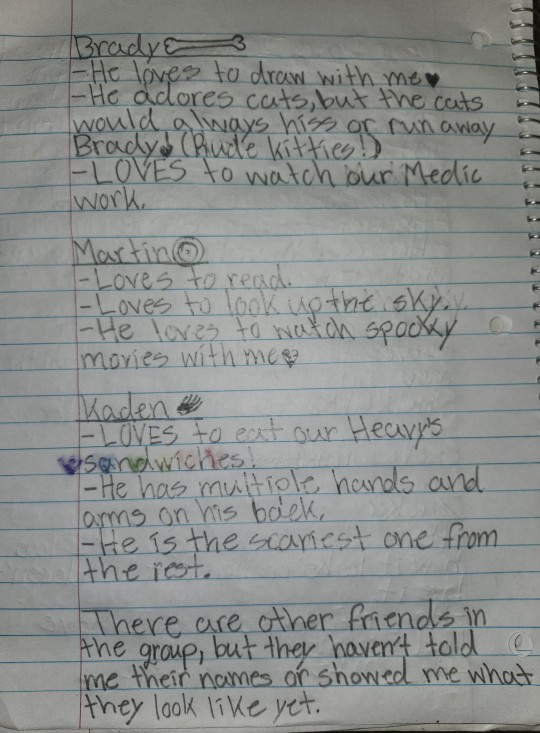 Brady
-He loves to draw with me♥
-He adores cats, but the cats
would always hiss or run away
Brady (Rude kitties!)
-LOVES to watch our Medic
work.
Martin
-Loves to read.
-Loves to look up the sky.
-He loves to watch spooky
movies with me♥
Kaden
-LOVES to eat our Heavy's
sandwiches!
-He has multiple hands and
arms on his back.
-He is the scariest one from
the rest.
There are other friends in
the group, but they haven't told
me their names or showed me what
they look like yet.